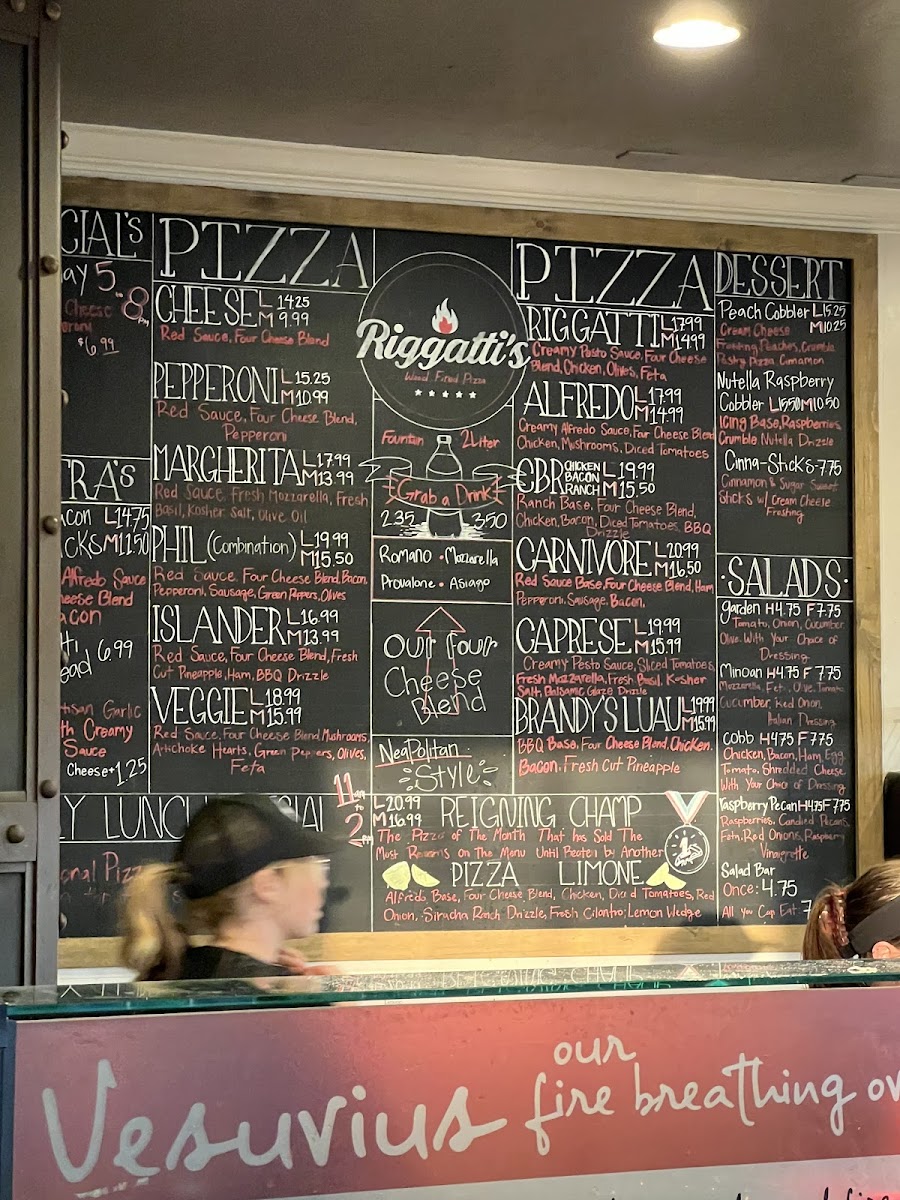 CIAL'S
ay 5
to 8 pm
Cheese
$6.99
TRA'S
acon L14.75
CKS M11.50
Alfredo Sauce
heese Blend
acon
ead 6.99
isan Garlic
th Creamy
Sauce
Cheese +1.25
PIZZA
CHEESE L 14.25
M 9.99
Red Sauce, Four Cheese Blend
PEPPERONI L 15.25
M 10.99
Red Sauce, Four Cheese Blend,
Pepperoni
MARGHERITA L 17.99
M 13.99
Red Sauce Fresh Mozzarella, Fresh
Basil, Kosher Salt, Olive Oil
PHIL (Combination) L 19.99
M 15.50
Red Sauce, Four Cheese Blend, Bacon,
Pepperoni, Sausage, Green Peppers, Olives
ISLANDER L 16.99
M 13.99
Red Sauce, Four Cheese Blend, Fresh
Cut Pineapple, Ham, BBQ Drizzle
VEGGIE L 18.99
M 15.99
Red Sauce, Four Cheese Blend, Mushrooms,
Artichoke Hearts, Green Peppers, Olives,
Feta
Y LUNCH IAL
11 am
to
2 pm
onal Pizz
Riggatti's
Wood Fired Pizza
Fountain 2 Liter
Grab a Drink
2.35 3.50
Romano • Mozzarella
Provalone • Asiago
Our Four
Cheese
Blend
Neapolitan
Style
PIZZA
RIGGATTI L 17.99
M 14.99
Creamy Pesto Sauce, Four Cheese
Blend, Chicken, Olives, Feta
ALFREDO L 17.99
M 14.99
Creamy Alfredo Sauce, Four Cheese Blend
Chicken, Mushrooms, Diced Tomatoes
CBR CHICKEN BACON RANCH L 19.99
M 15.50
Ranch Base, Four Cheese Blend,
Chicken, Bacon, Diced Tomatoes, BBQ
Drizzle
CARNIVORE L 20.99
M 16.50
Red Sauce Base, Four Cheese Blend, Ham
Pepperoni, Sausage, Bacon,
CAPRESE L 19.99
M 15.99
Creamy Pesto Sauce, Sliced Tomatoes,
Fresh Mozzarella, Fresh Basil, Kosher
Salt, Balsamic Glaze Drizzle
BRANDY'S LUAU L 19.99
M 15.99
BBQ Base, Four Cheese Blend, Chicken,
Bacon, Fresh Cut Pineapple
L 20.99
M 16.99 REIGNING CHAMP
The Pizza of The Month That has Sold The
Most Remains on The Menu Until Beaten by Another
PIZZA LIMONE
Alfredo Base, Four Cheese Blend, Chicken, Diced Tomatoes, Red
Onion, Siracha Ranch Drizzle, Fresh Cilantro, Lemon Wedge
DESSERT
Peach Cobbler L 15.25
Cream Cheese M 10.25
Frosting, Peaches, Crumble
Pastry Pizza Cinnamon
Nutella Raspberry
Cobbler L 15.50 M 10.50
Icing Base, Raspberries,
Crumble, Nutella Drizzle
Cinna-Sticks 7.75
Cinnamon & Sugar Sweet
Sticks w/ Cream Cheese
Frosting
•SALADS•
Garden H 4.75 F 7.75
Tomato, Onion, Cucumber
Olive. With Your Choice of
Dressing
Minoan H 4.75 F 7.75
Mozzarella, Feta, Olive, Tomato
Cucumber, Red Onion,
Italian Dressing
Cobb H 4.75 F 7.75
Chicken, Bacon, Ham, Egg
Tomato, Shredded Cheese
With Your Choice of Dressing
Raspberry Pecan H 4.75 F 7.75
Raspberries, Candied Pecans,
Feta, Red Onions, Raspberry
Vinaigrette
Salad Bar
Once: 4.75
All You Can Eat: 7
Vesuvius our
fire breathing ov